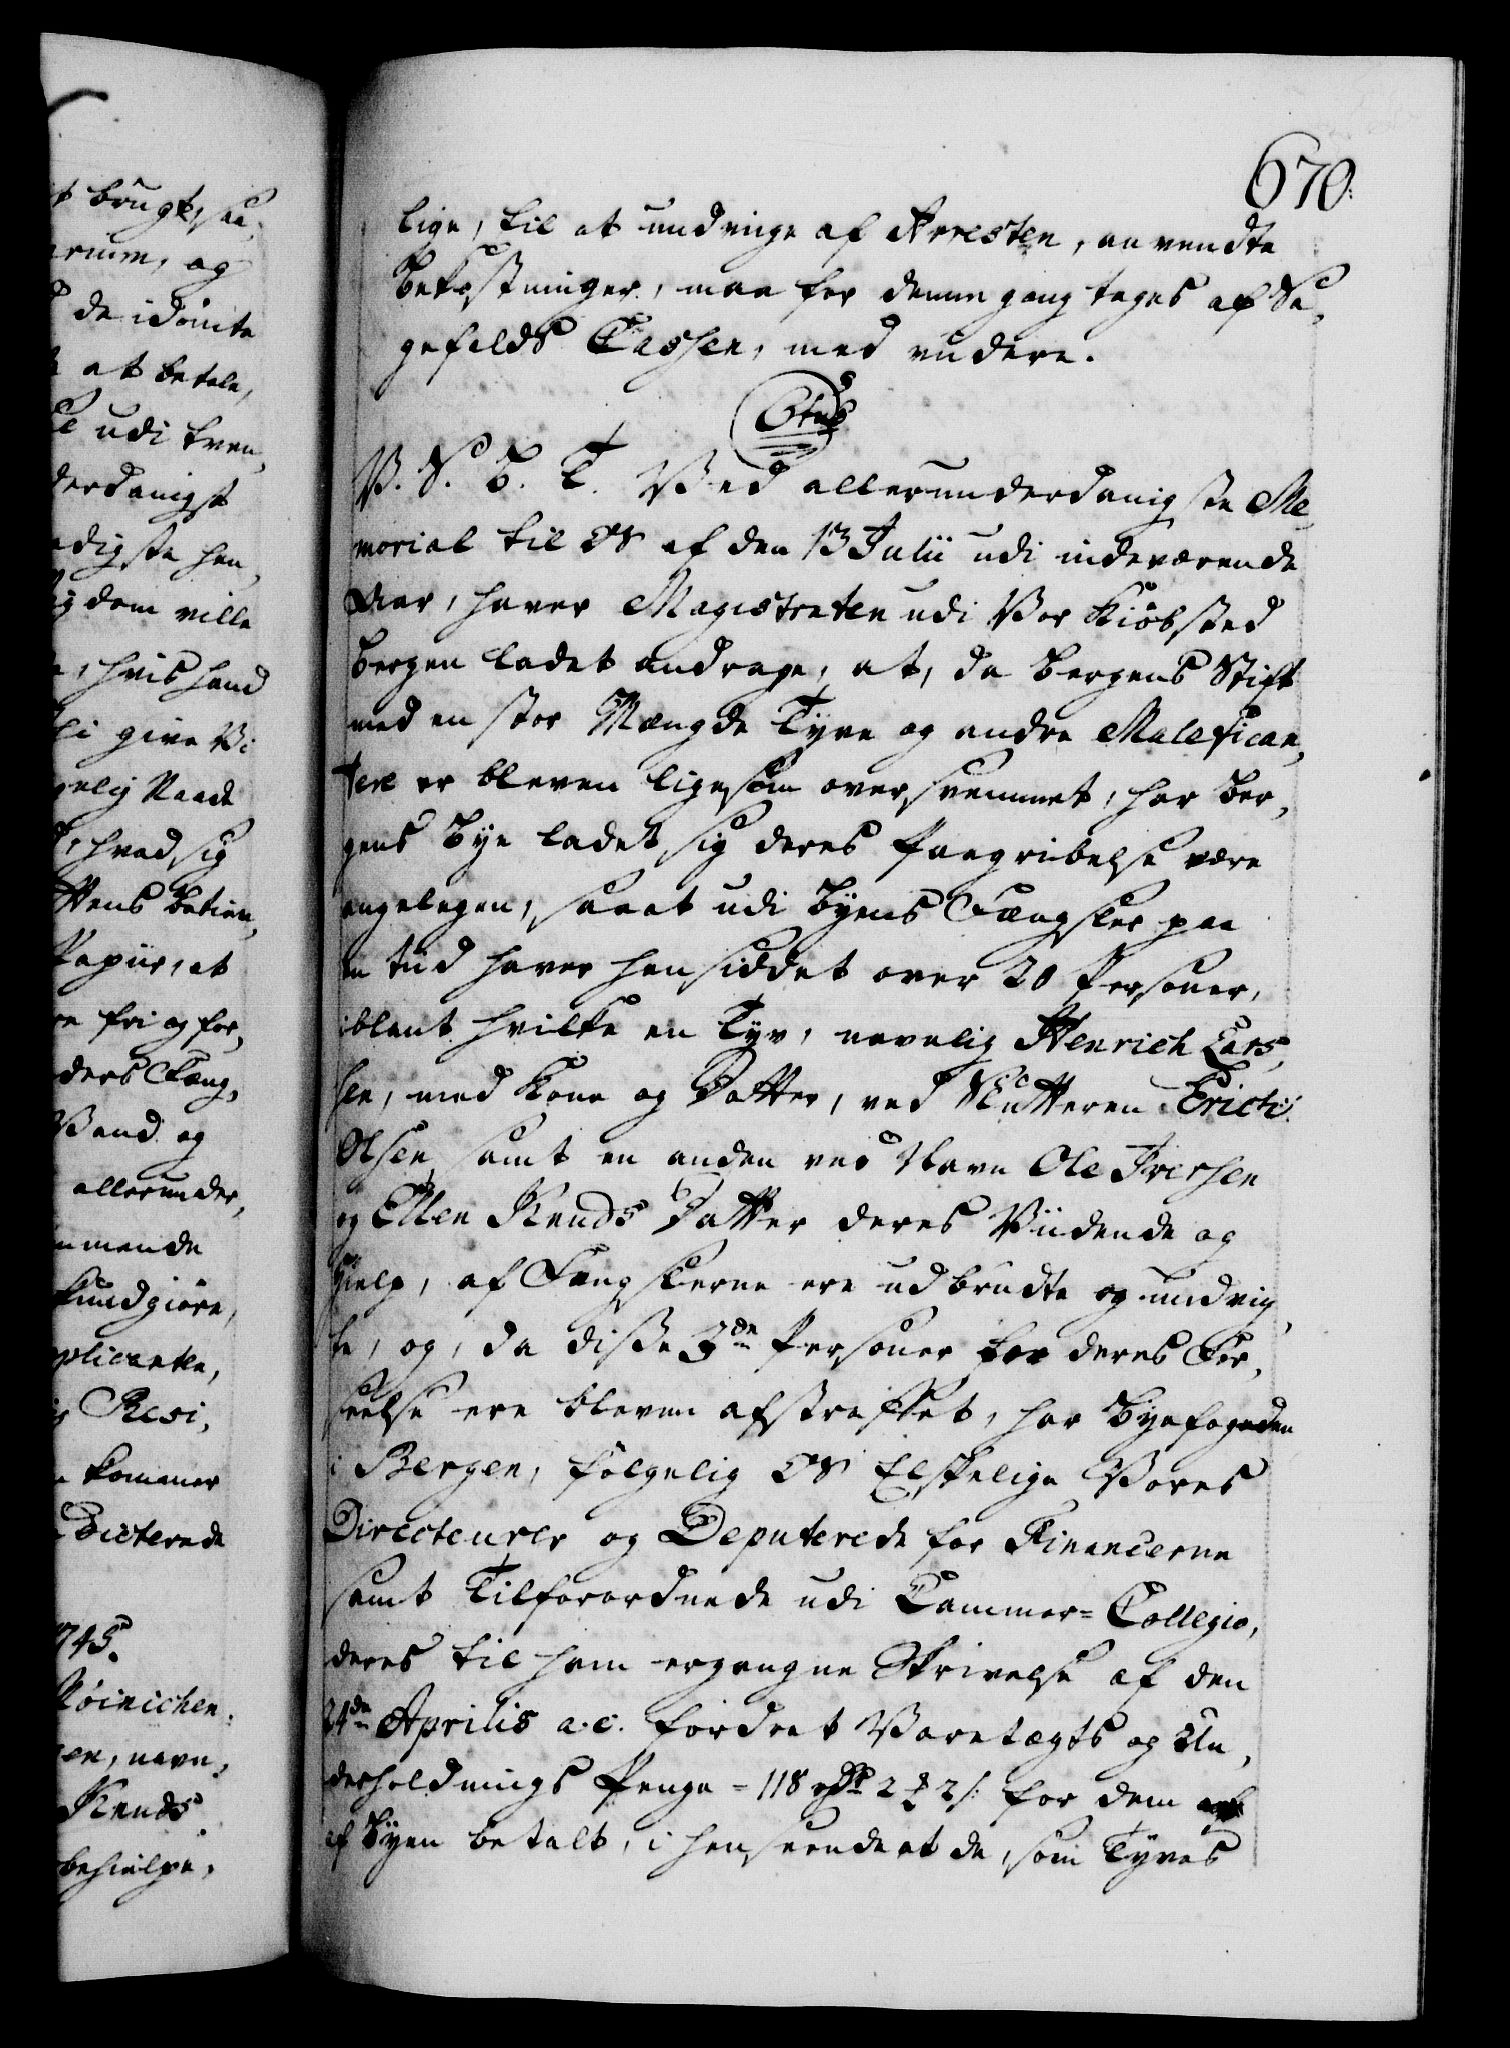 670.
lige, til at undvige af Arresten, anvendte
Bekostninger, maa for denne gang tages af Sa,
gefalds Cashen, med videre.
C6tus
V. S. G. T. Ved allerunderdanigste Me,
morial til Os af den 13 Julii udi indeværende
Aar, haver Magistraten udi Vor Kiøbsted
Bergen ladet andrage, at, da Bergens Stift
med en stor Mængde Tyve og andre Malefican,
tere er bleven ligesom oversvemmet, har Ber,
gens Bye ladet sig deres Paagribelse være
angelegen, saaat udi Byens Fængsler paa
en tiid haver hensiddet over 20 Personer,
iblant hvilke en Tyv, navnlig Henrich Lars,
sen, med Kone og Datter, ved Slutteren Erich
Olsen samt en anden ved Navn Ole Iversen
og Ellen Knuds Datter deres Viidende og
Hielp, af Fængslerne ere udbrudte og undvig,
te, og, da disse 3de Personer for deres For,
seelse ere bleven afstraffet, har Byefogeden
i Bergen, følgelig Os Elskelige Vores
Directeurer og Deputerede for Financerne
samt Tilforordnede udi Cammer=Collegio,
deres til ham ergangne Skrivelse af den
24de Aprilis a.c. fordret Varetægts og Un,
derholdnings Penge = 118 rdr 2 ꝶ 2 s: for dem
af Byen betalt, i henseende at de, som Tyves
t brugt, saa,
rium, og
de idømte
at betale,
udi tven,
derdanigst
adigste hen,
dem ville
, hvis hand
give Vi
gelig Naade
, hvad sig
ttens Betien,
Papiir, at
re fri og for,
ders Fæng,
Vand og
allerunder,
mmende
kundgiøre,
plicanten,
Resi,
kommer
Dicterede
745.
Nøinichen.
sen, navn,
Knuds
behielpe,